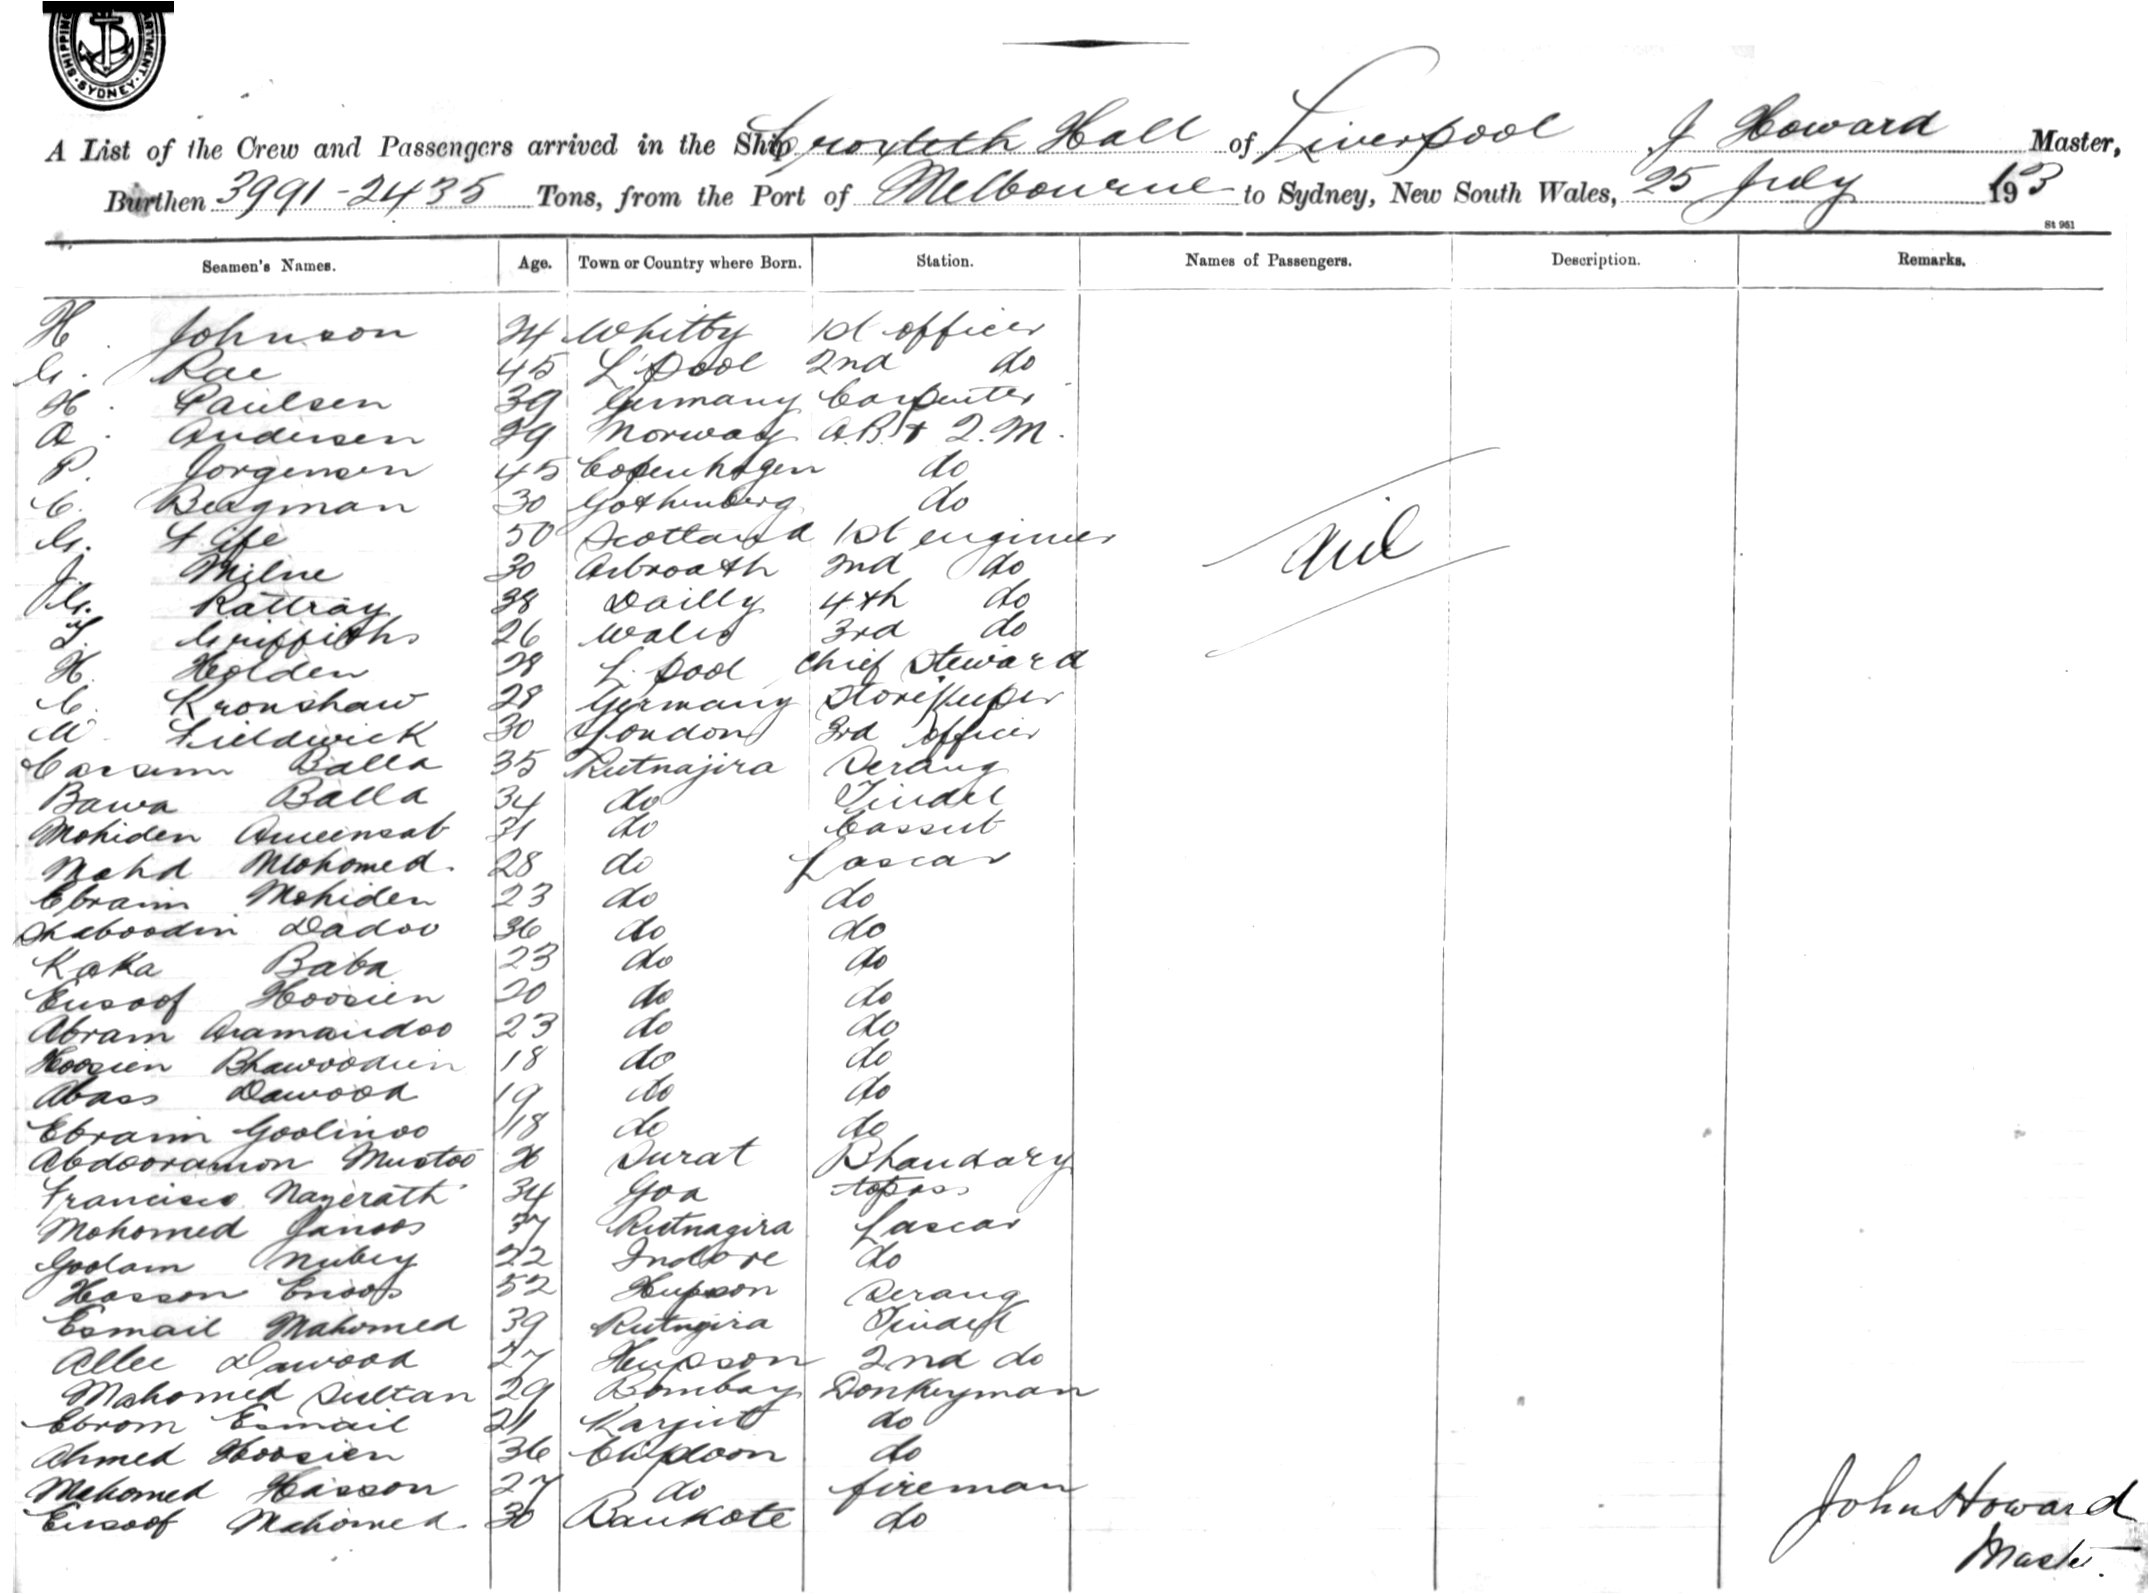 SHIPPING DEPARTMENT · SYDNEY ·
A List of the Crew and Passengers arrived in the Ship Croxteth Hall of Liverpool J Howard Master,
Burthen 3991-2435 Tons, from the Port of Melbourne to Sydney, New South Wales, 25 July 193
St 961
Seamen's Names. Age. Town or Country where Born. Station. Names of Passengers. Description. Remarks.
H. Johnson 34 Whitby 1st officer
G. Rae 45 L'pool 2nd do
H. Paulsen 39 Germany Carpenter
A. Andersen 39 Norway A.B. & Q.M.
P. Jorgensen 45 Copenhagen do
C. Bergman 30 Gothenberg do
G. Fife 50 Scotland 1st engineer
J. Milne 30 Arbroath 2nd do
Nil
G. Rattray 38 Dailly 4th do
L. Griffiths 26 Wales 3rd do
H. Holden 28 L. pool Chief Steward
C. Kronshaw 28 Germany Storekeeper
W. Fieldwick 30 London 3rd officer
Cassim Balla 35 Rutnajira Serang
Bawa Balla 34 do Tindel
Mohiden Ameensab 31 do Cassub
Mohd Mohomed 28 do Lascar
Ebraim Mohiden 23 do do
Shaboodin Dadoo 36 do do
Kaka Baba 23 do do
Eusoof Hoosien 20 do do
Abram Aramandoo 23 do do
Hoosien Bhawoodin 18 do do
Abass Dawood 19 do do
Ebraim Goolinoo 18 do do
Abdooramon Mustoo Surat Bhandary
Francisco Nazerath 34 Goa topass
Mohomed Janoos 37 Rutnagira Lascar
Goolam Nubey 22 Indore do
Hasson Enoos 52 Hupson Serang
Esmail Mahomed 39 Rutngira Tindel
Allee Dawood 27 Hupson 2nd do
Mahomed Sultan 29 Bombay Donkeyman
Ebrom Esmail 21 Karjut do
Ahmed Hoosien 36 Chipdoon do
Mahomed Hasson 27 do fireman
Eusoof Mahomed 30 Bankote do
John Howard
Master.